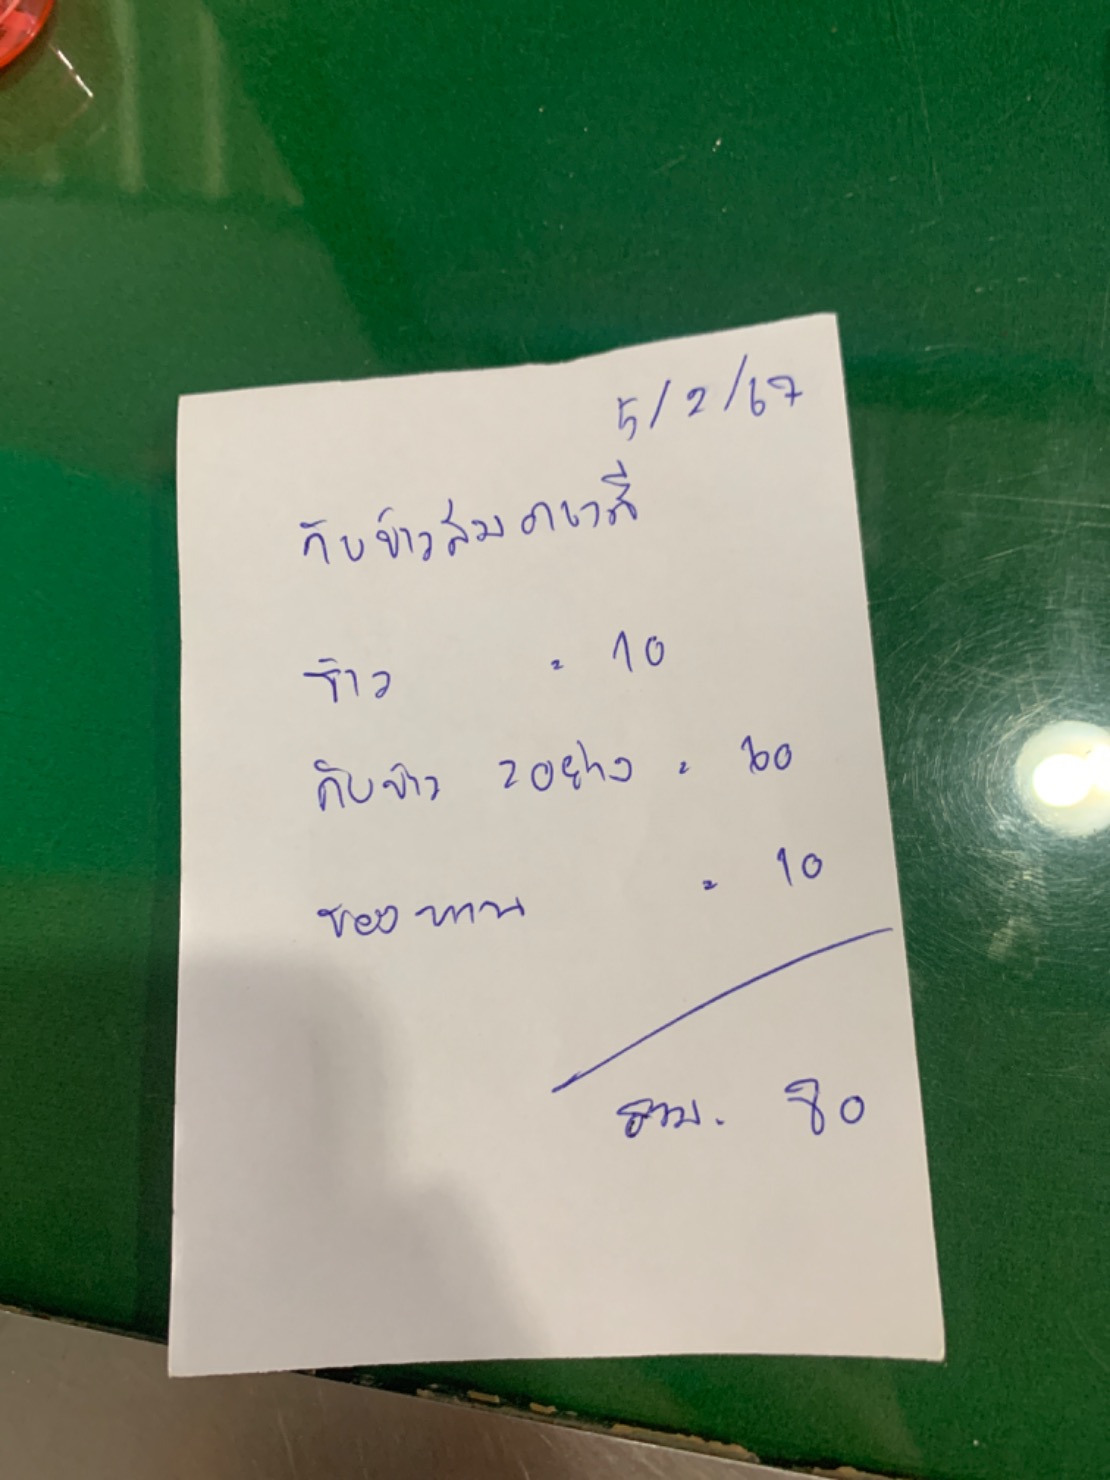 5/2/67
กับข้าว
ข้าว = 10
กับข้าว 2อย่าง = 60
ของหวาน = 10
รวม. 80